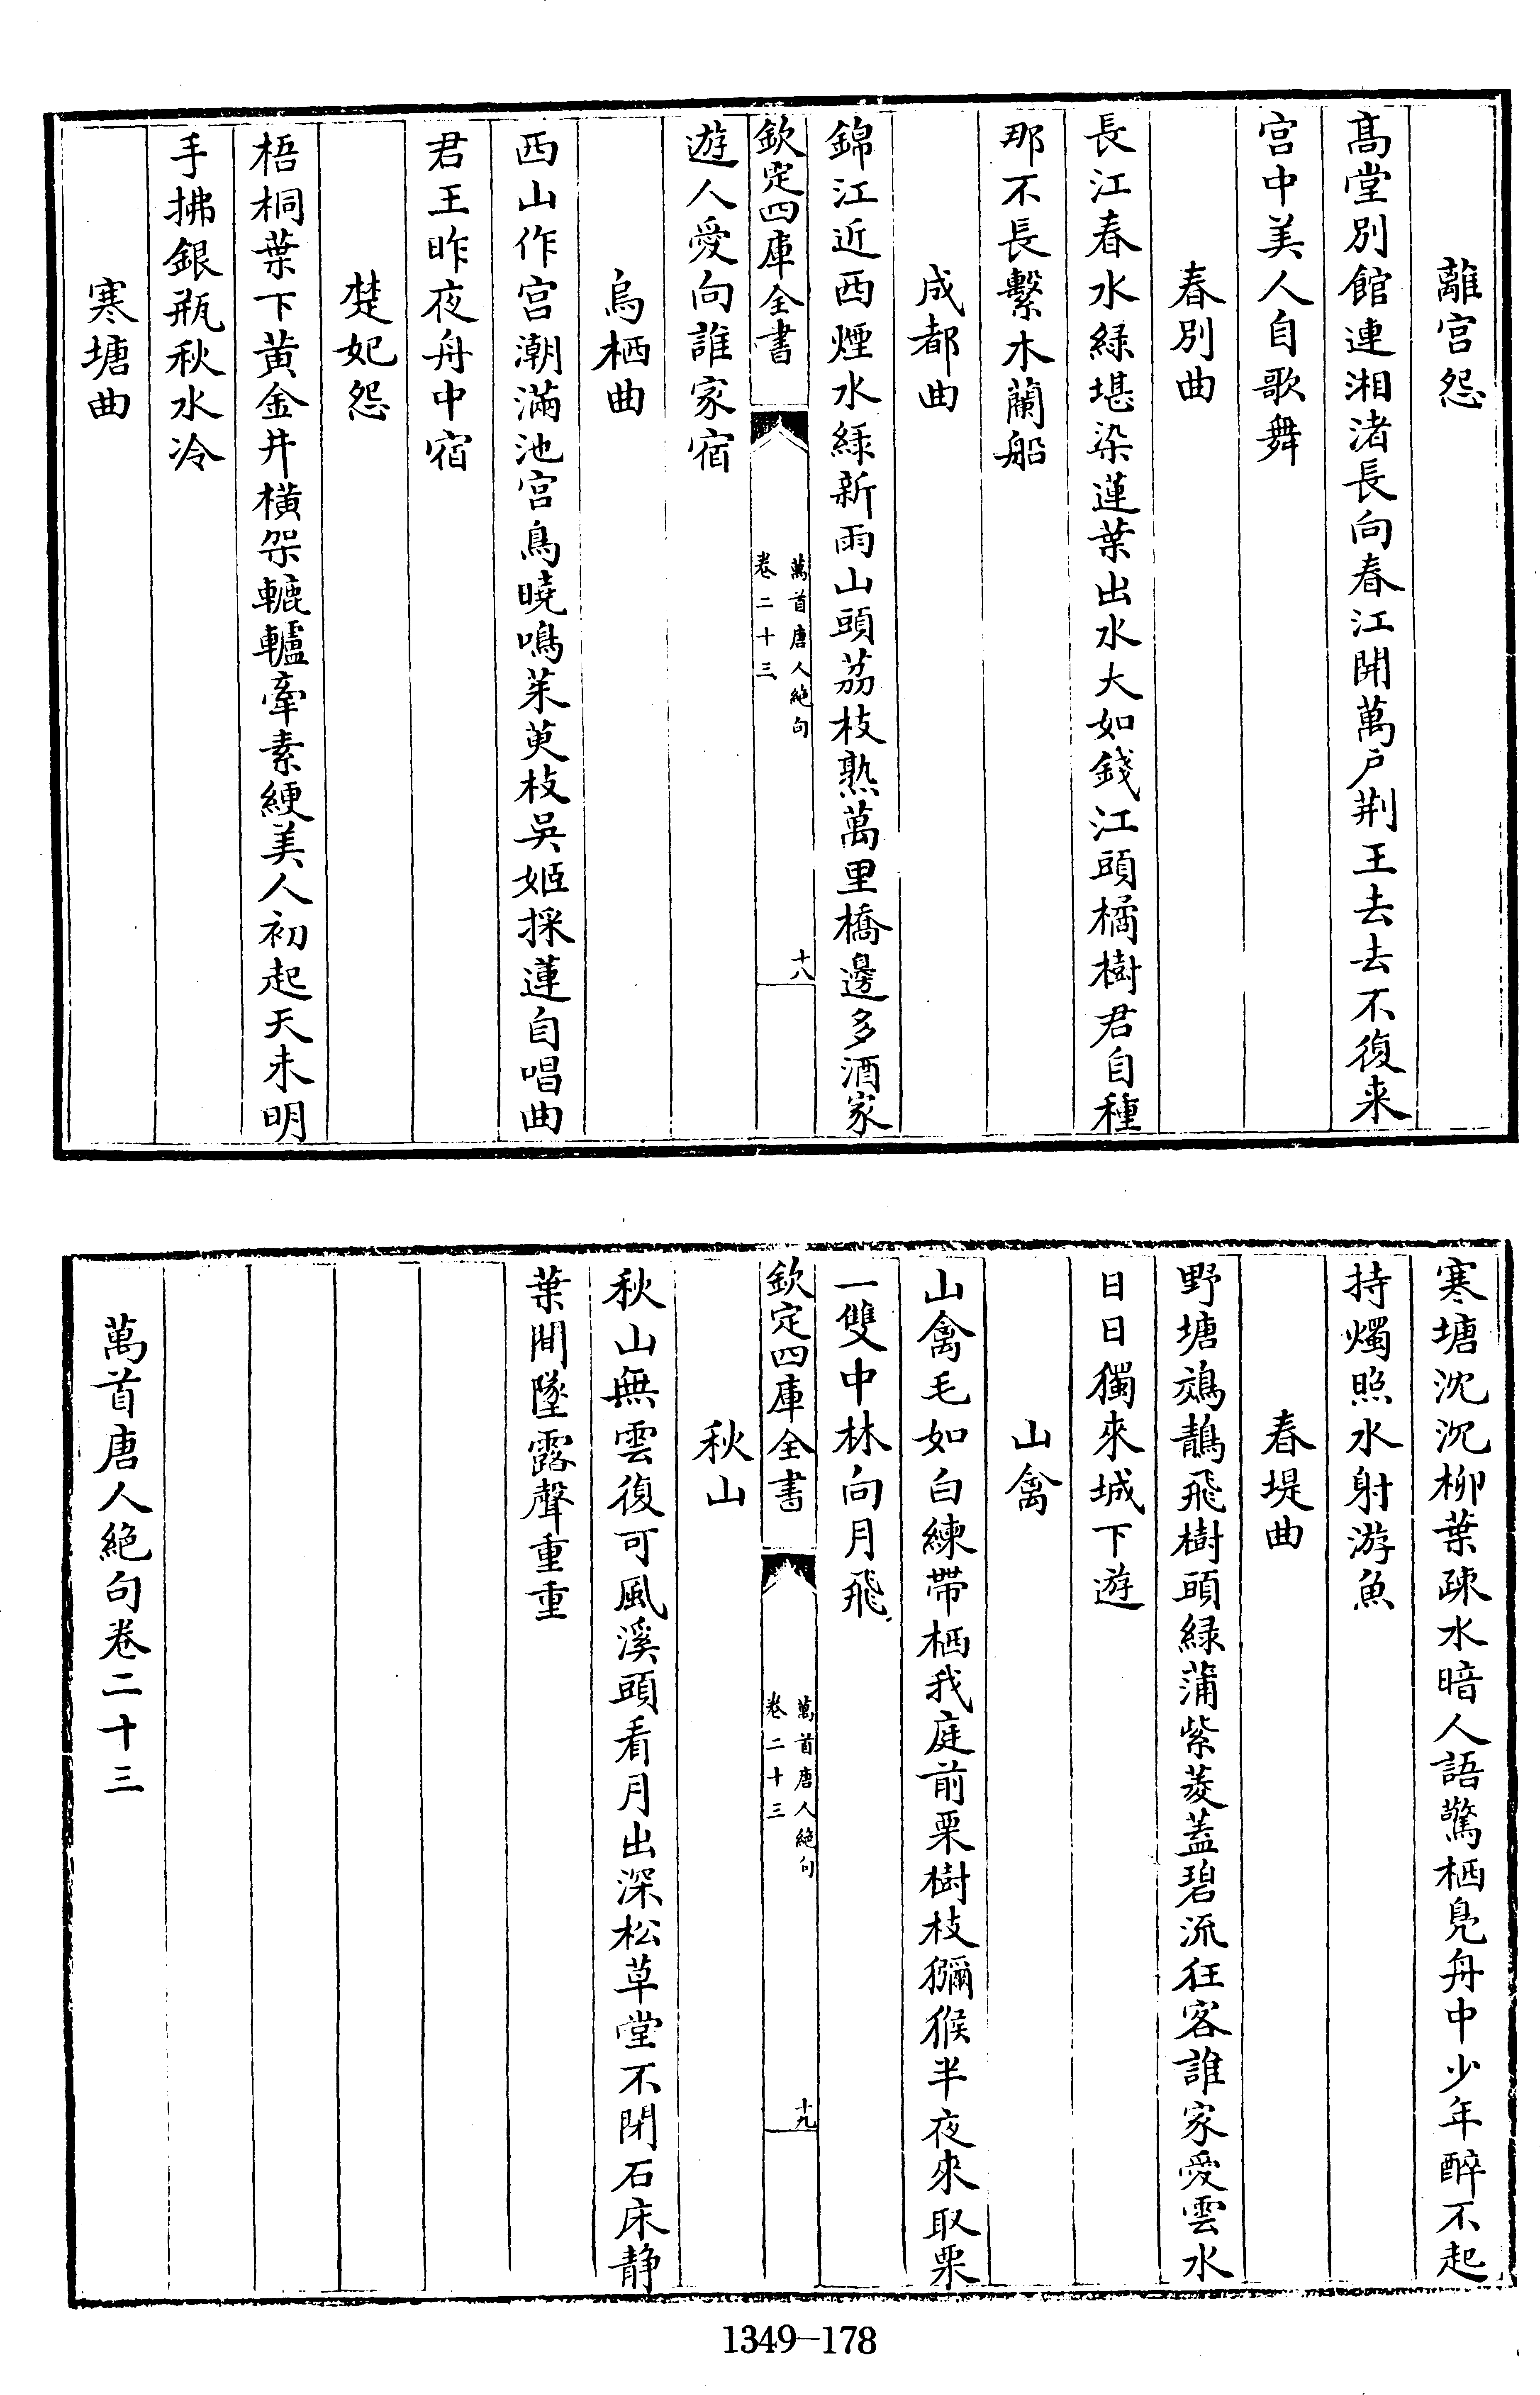 離宫怨
髙堂別館連湘渚長向春江開萬户荆王去去不復来
宫中美人自歌舞
春別曲
長江春水緑堪染蓮葉出水大如錢江頭橘樹君自種
那不長繫木蘭船
成都曲
錦江近西煙水緑新雨山頭荔枝熟萬里橋邊多酒家
欽定四庫全書
萬首唐人絶句
卷二十三
十八
遊人愛向誰家宿
烏栖曲
西山作宫潮滿池宫鳥曉鳴茱萸枝吳姬採蓮自唱曲
君王昨夜舟中宿
楚妃怨
梧桐葉下黄金井横架轆轤牽素綆美人初起天未明
手拂銀瓶秋水冷
寒塘曲
寒塘沈沈柳葉疎水暗人語驚栖鳧舟中少年醉不起
持燭照水射游魚
春堤曲
野塘鵁鶄飛樹頭緑蒲紫菱蓋碧流狂客誰家愛雲水
日日獨來城下遊
山禽
山禽毛如白練帶栖我庭前栗樹枝獼猴半夜來取栗
一雙中林向月飛
欽定四庫全書
萬首唐人絶句
卷二十三
十九
秋山
秋山無雲復可風溪頭看月出深松草堂不閉石床静
葉間墜露聲重重
萬首唐人絶句卷二十三
1349—178